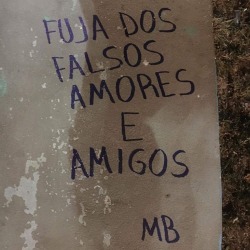 FUJA DOS
FALSOS
AMORES
E
AMIGOS
MB